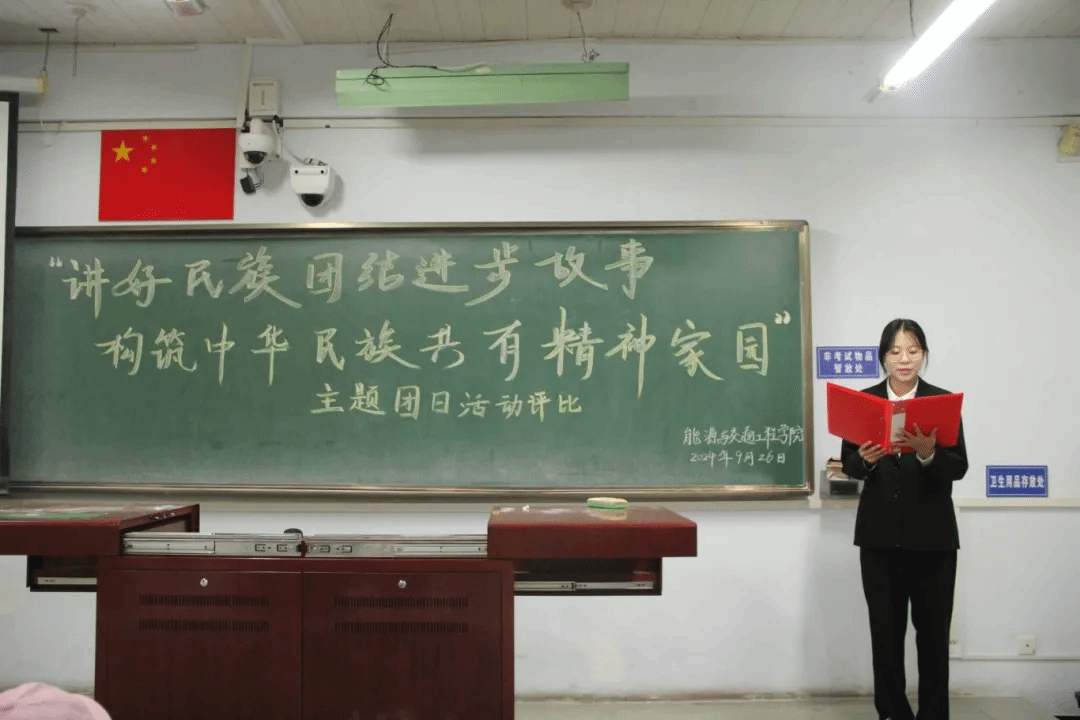 “讲好民族团结进步故事
构筑中华民族共有精神家园”
主题团日活动评比
能源与交通工程学院
2024年9月26日
非考试物品
暂放处
卫生用品存放处